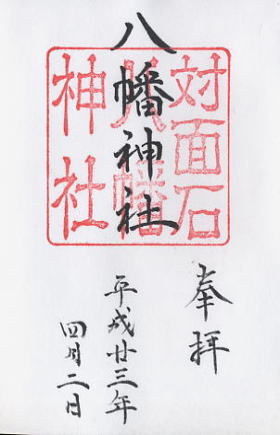 奉拝
対面石
八幡
神社
八幡神社
平成廿三年
四月二日